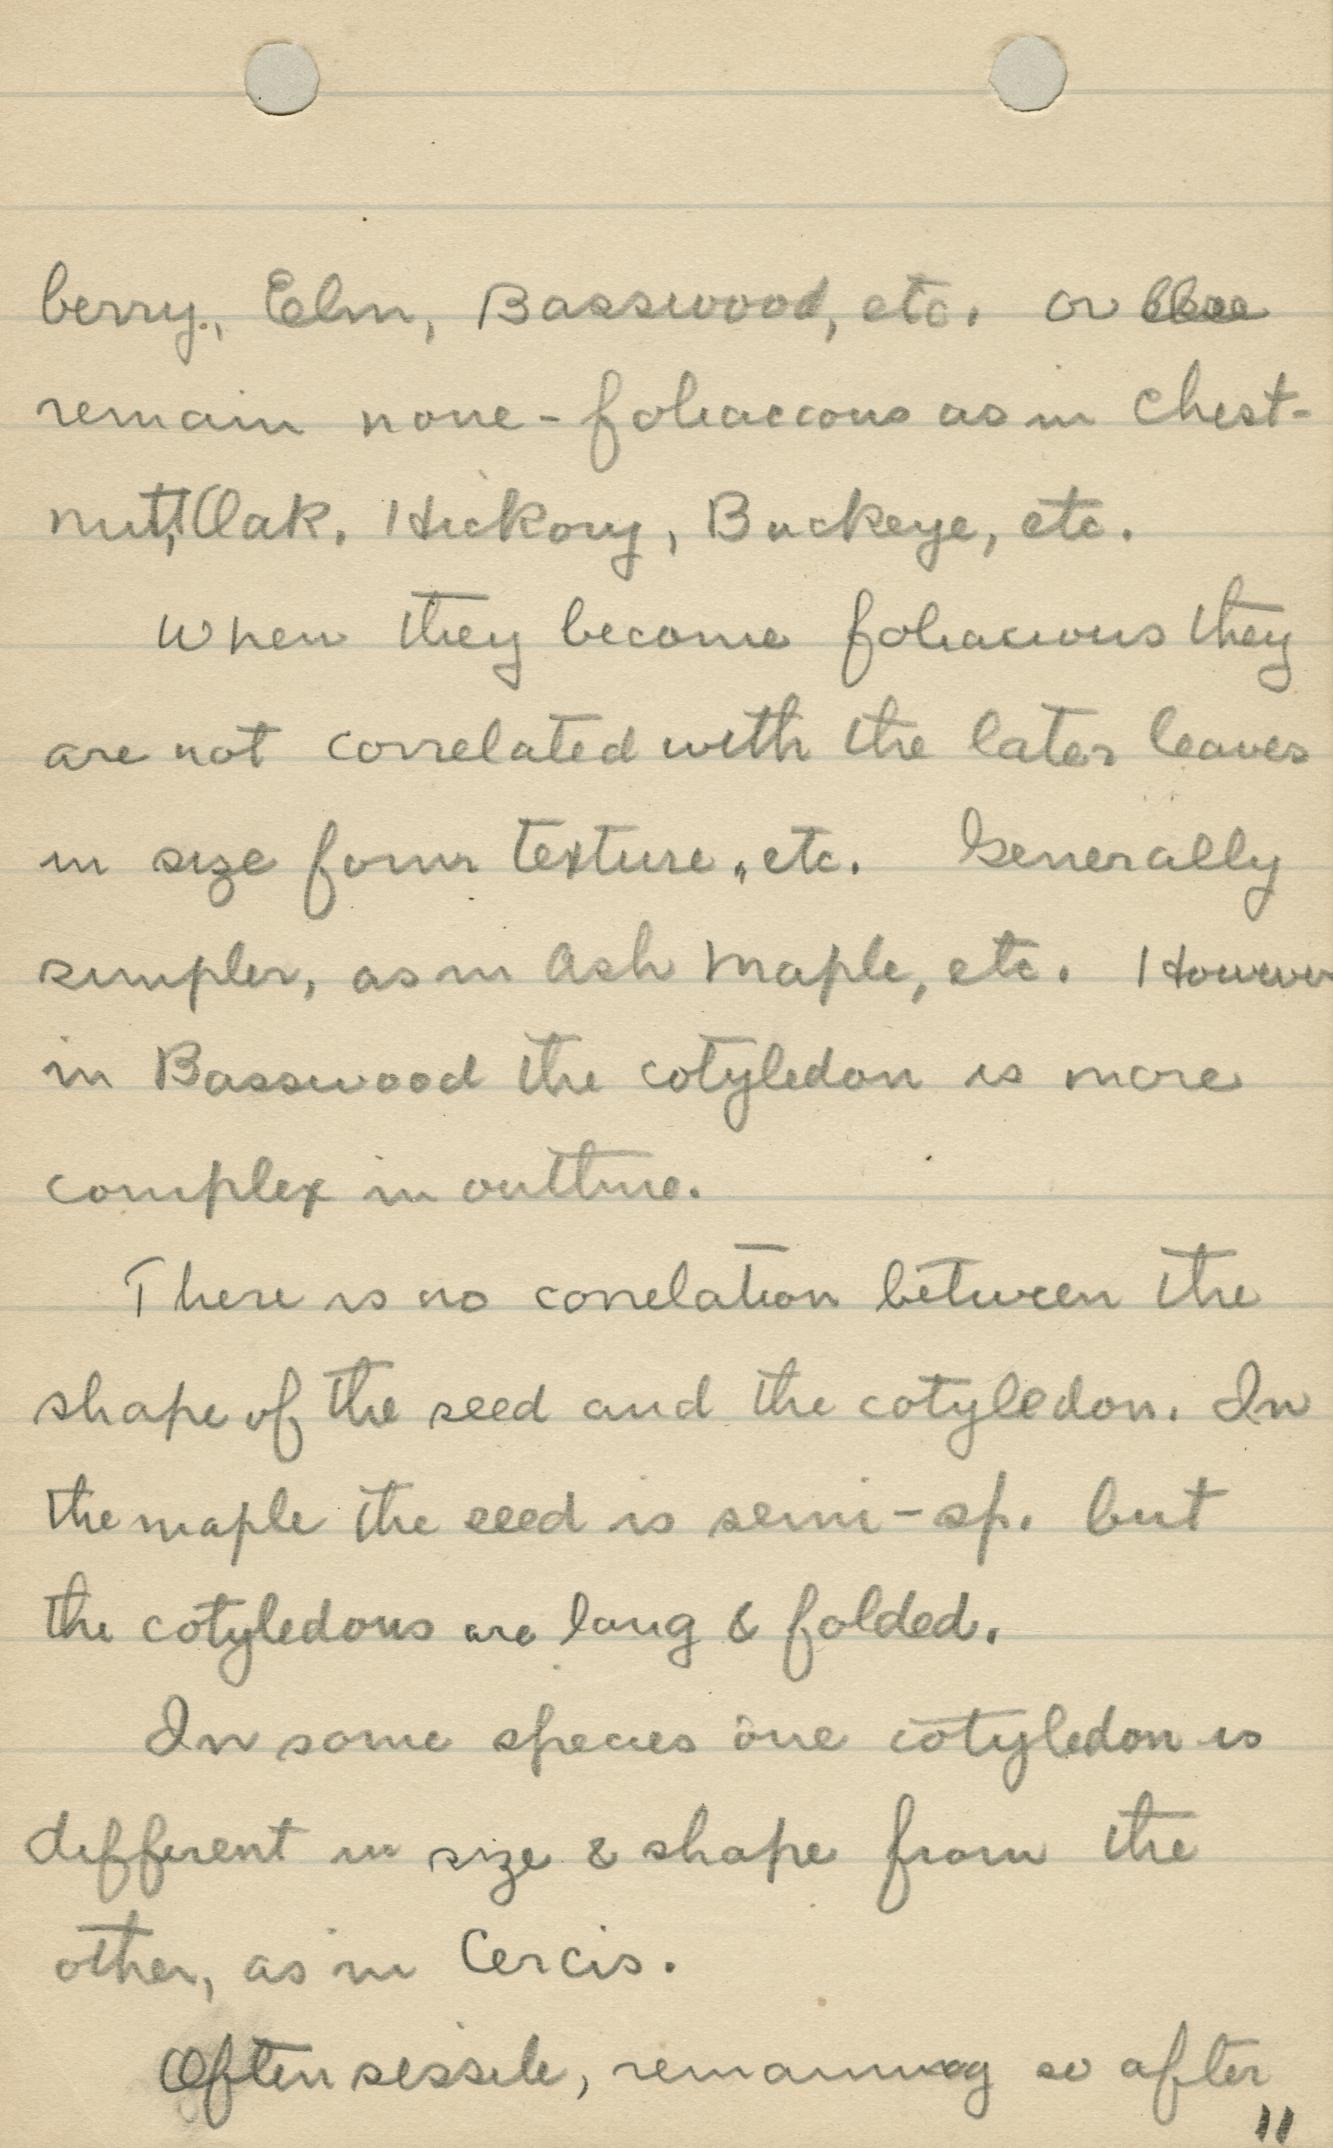 berry, Elm, Basswood, etc. or else
remain none-foliaceous as in Chest-
nut, Oak, Hickory, Buckeye, etc.
When they become foliacious they
are not correlated with the later leaves
in size form texture, etc. Generally
simpler, as in Ash Maple, etc. However
in Basswood the cotyledon is more
complex in outline.
There is no correlation between the
shape of the seed and the cotyledon. In
the maple the seed is semi-sp. but
the cotyledons are long & folded.
In some species one cotyledon is
different in size & shape from the
other, as in Cercis.
Often sessile, remaining so after
11